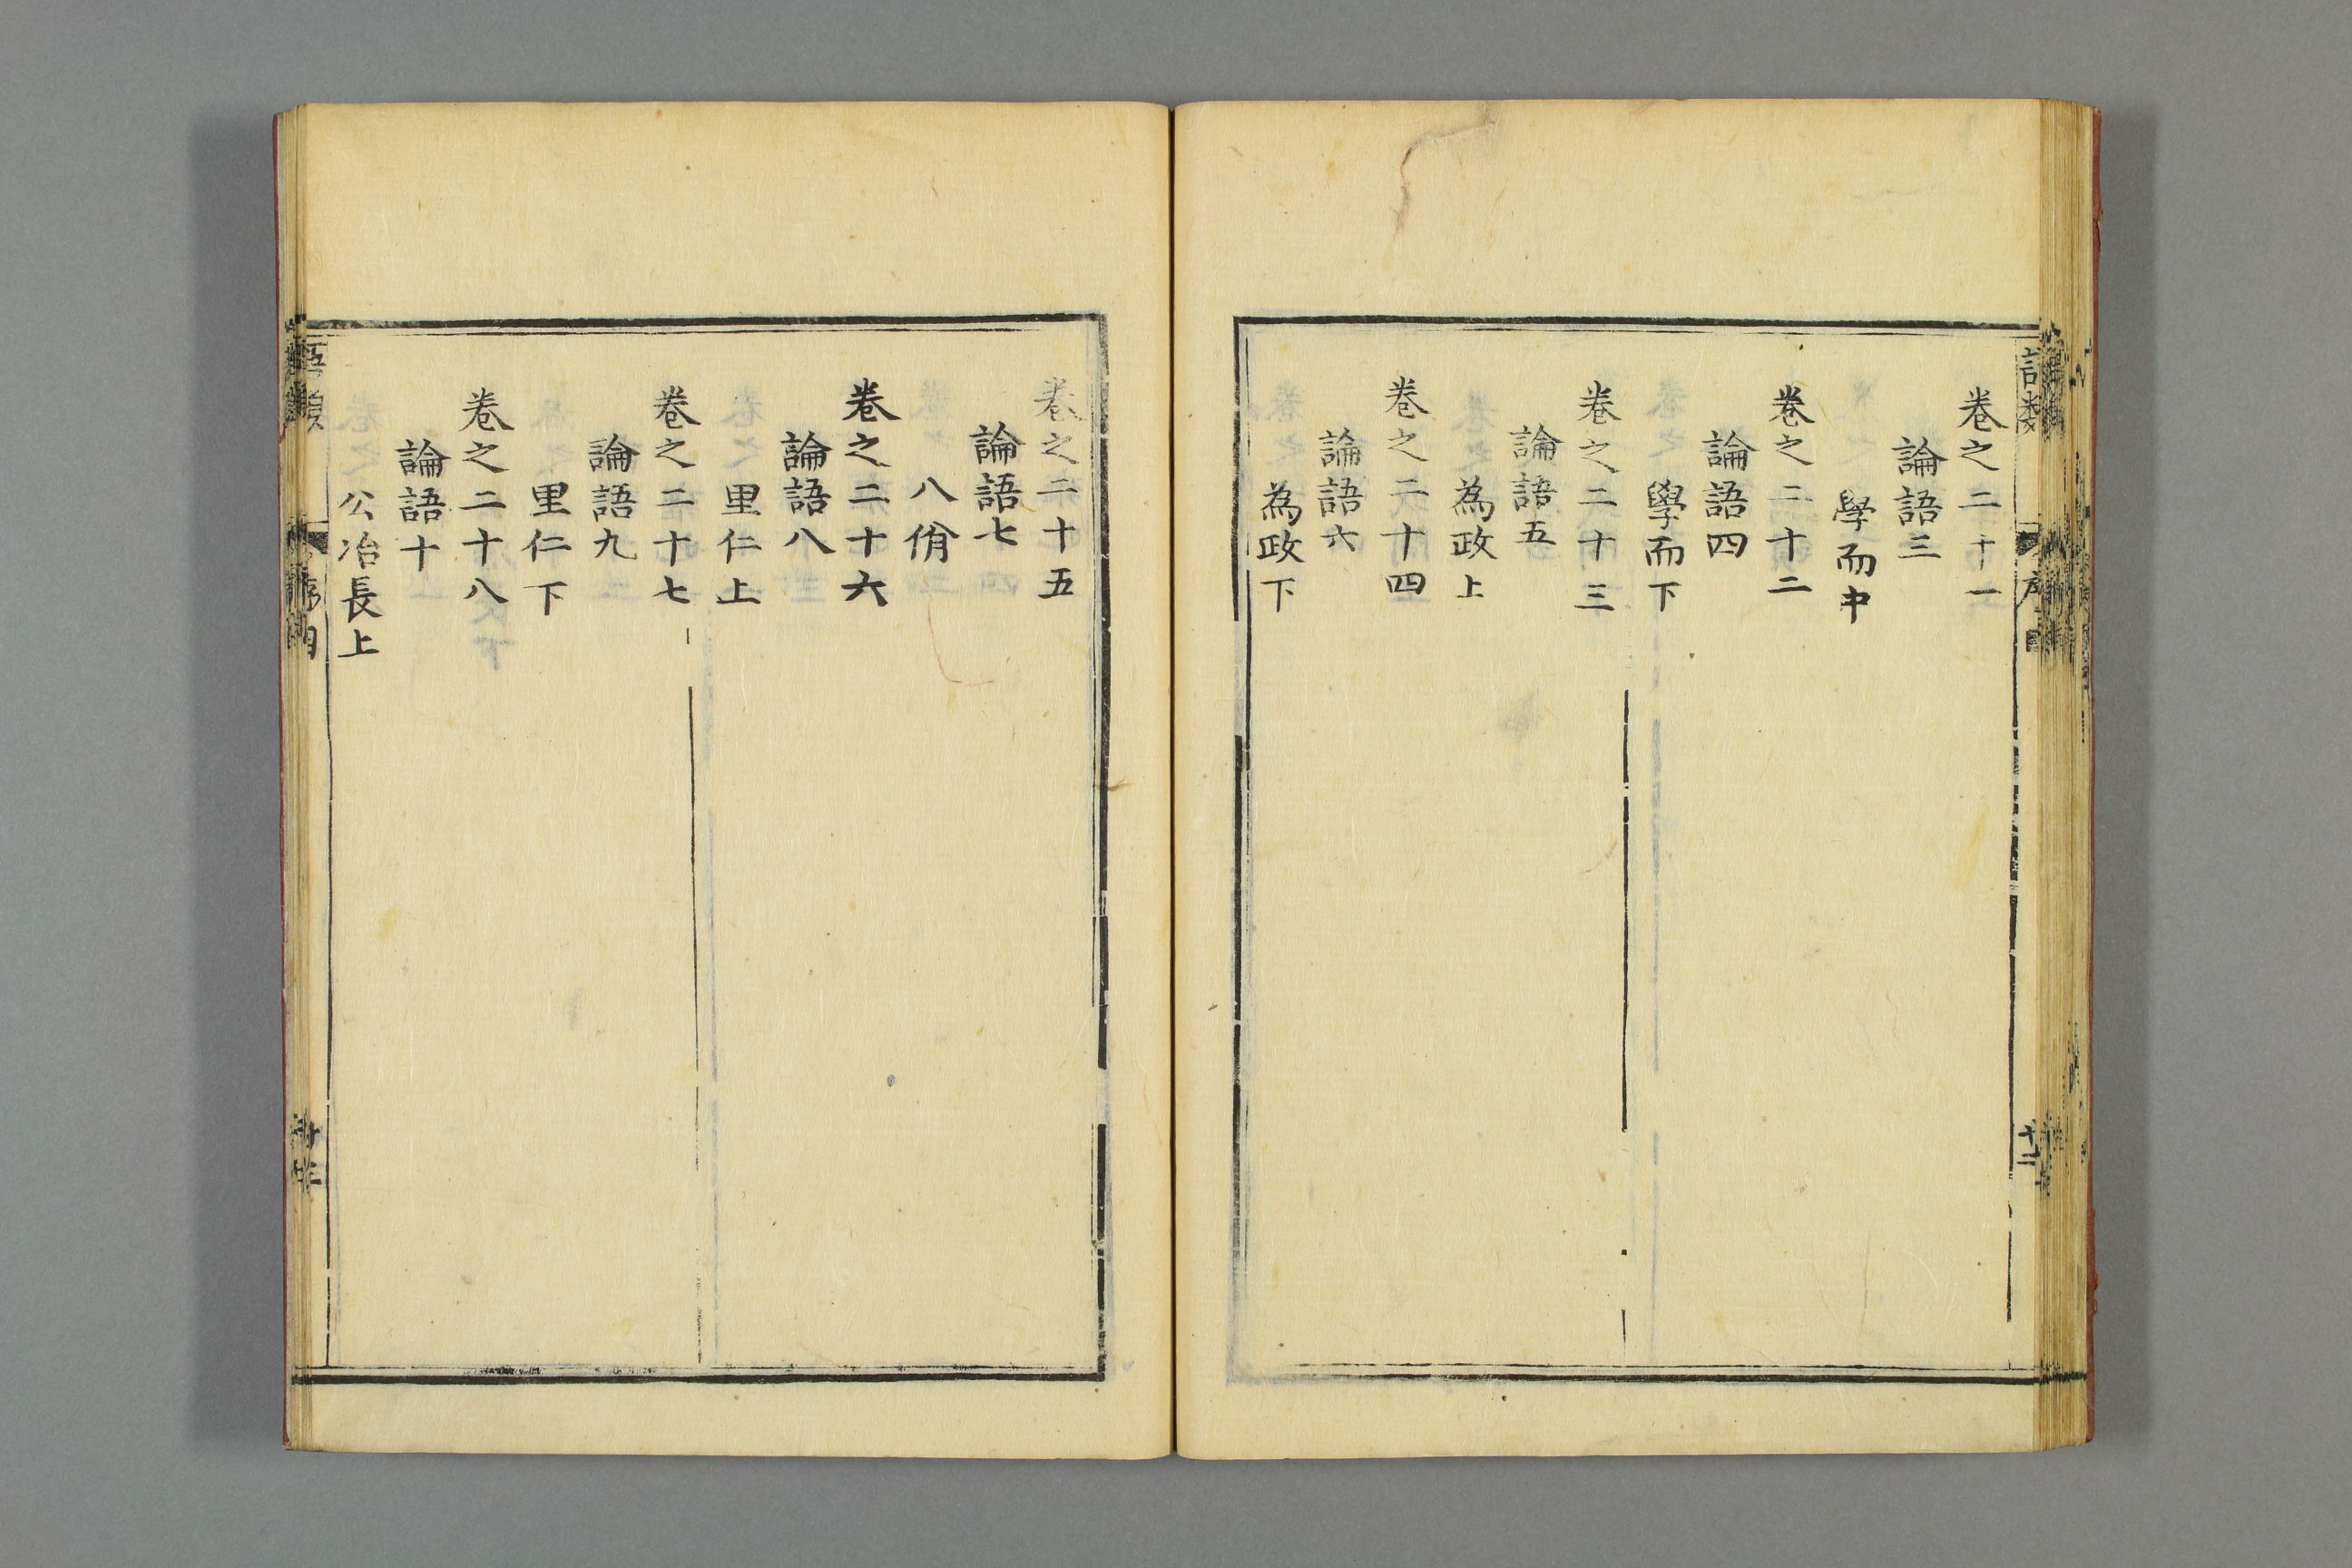 卷之二十一
論語三
學而中
卷之二十二
論語四
學而下
卷之二十三
論語五
為政上
卷之二十四
論語六
為政下
卷之二十五
論語七
八佾
卷之二十六
論語八
里仁上
卷之二十七
論語九
里仁下
卷之二十八
論語十
公冶長上